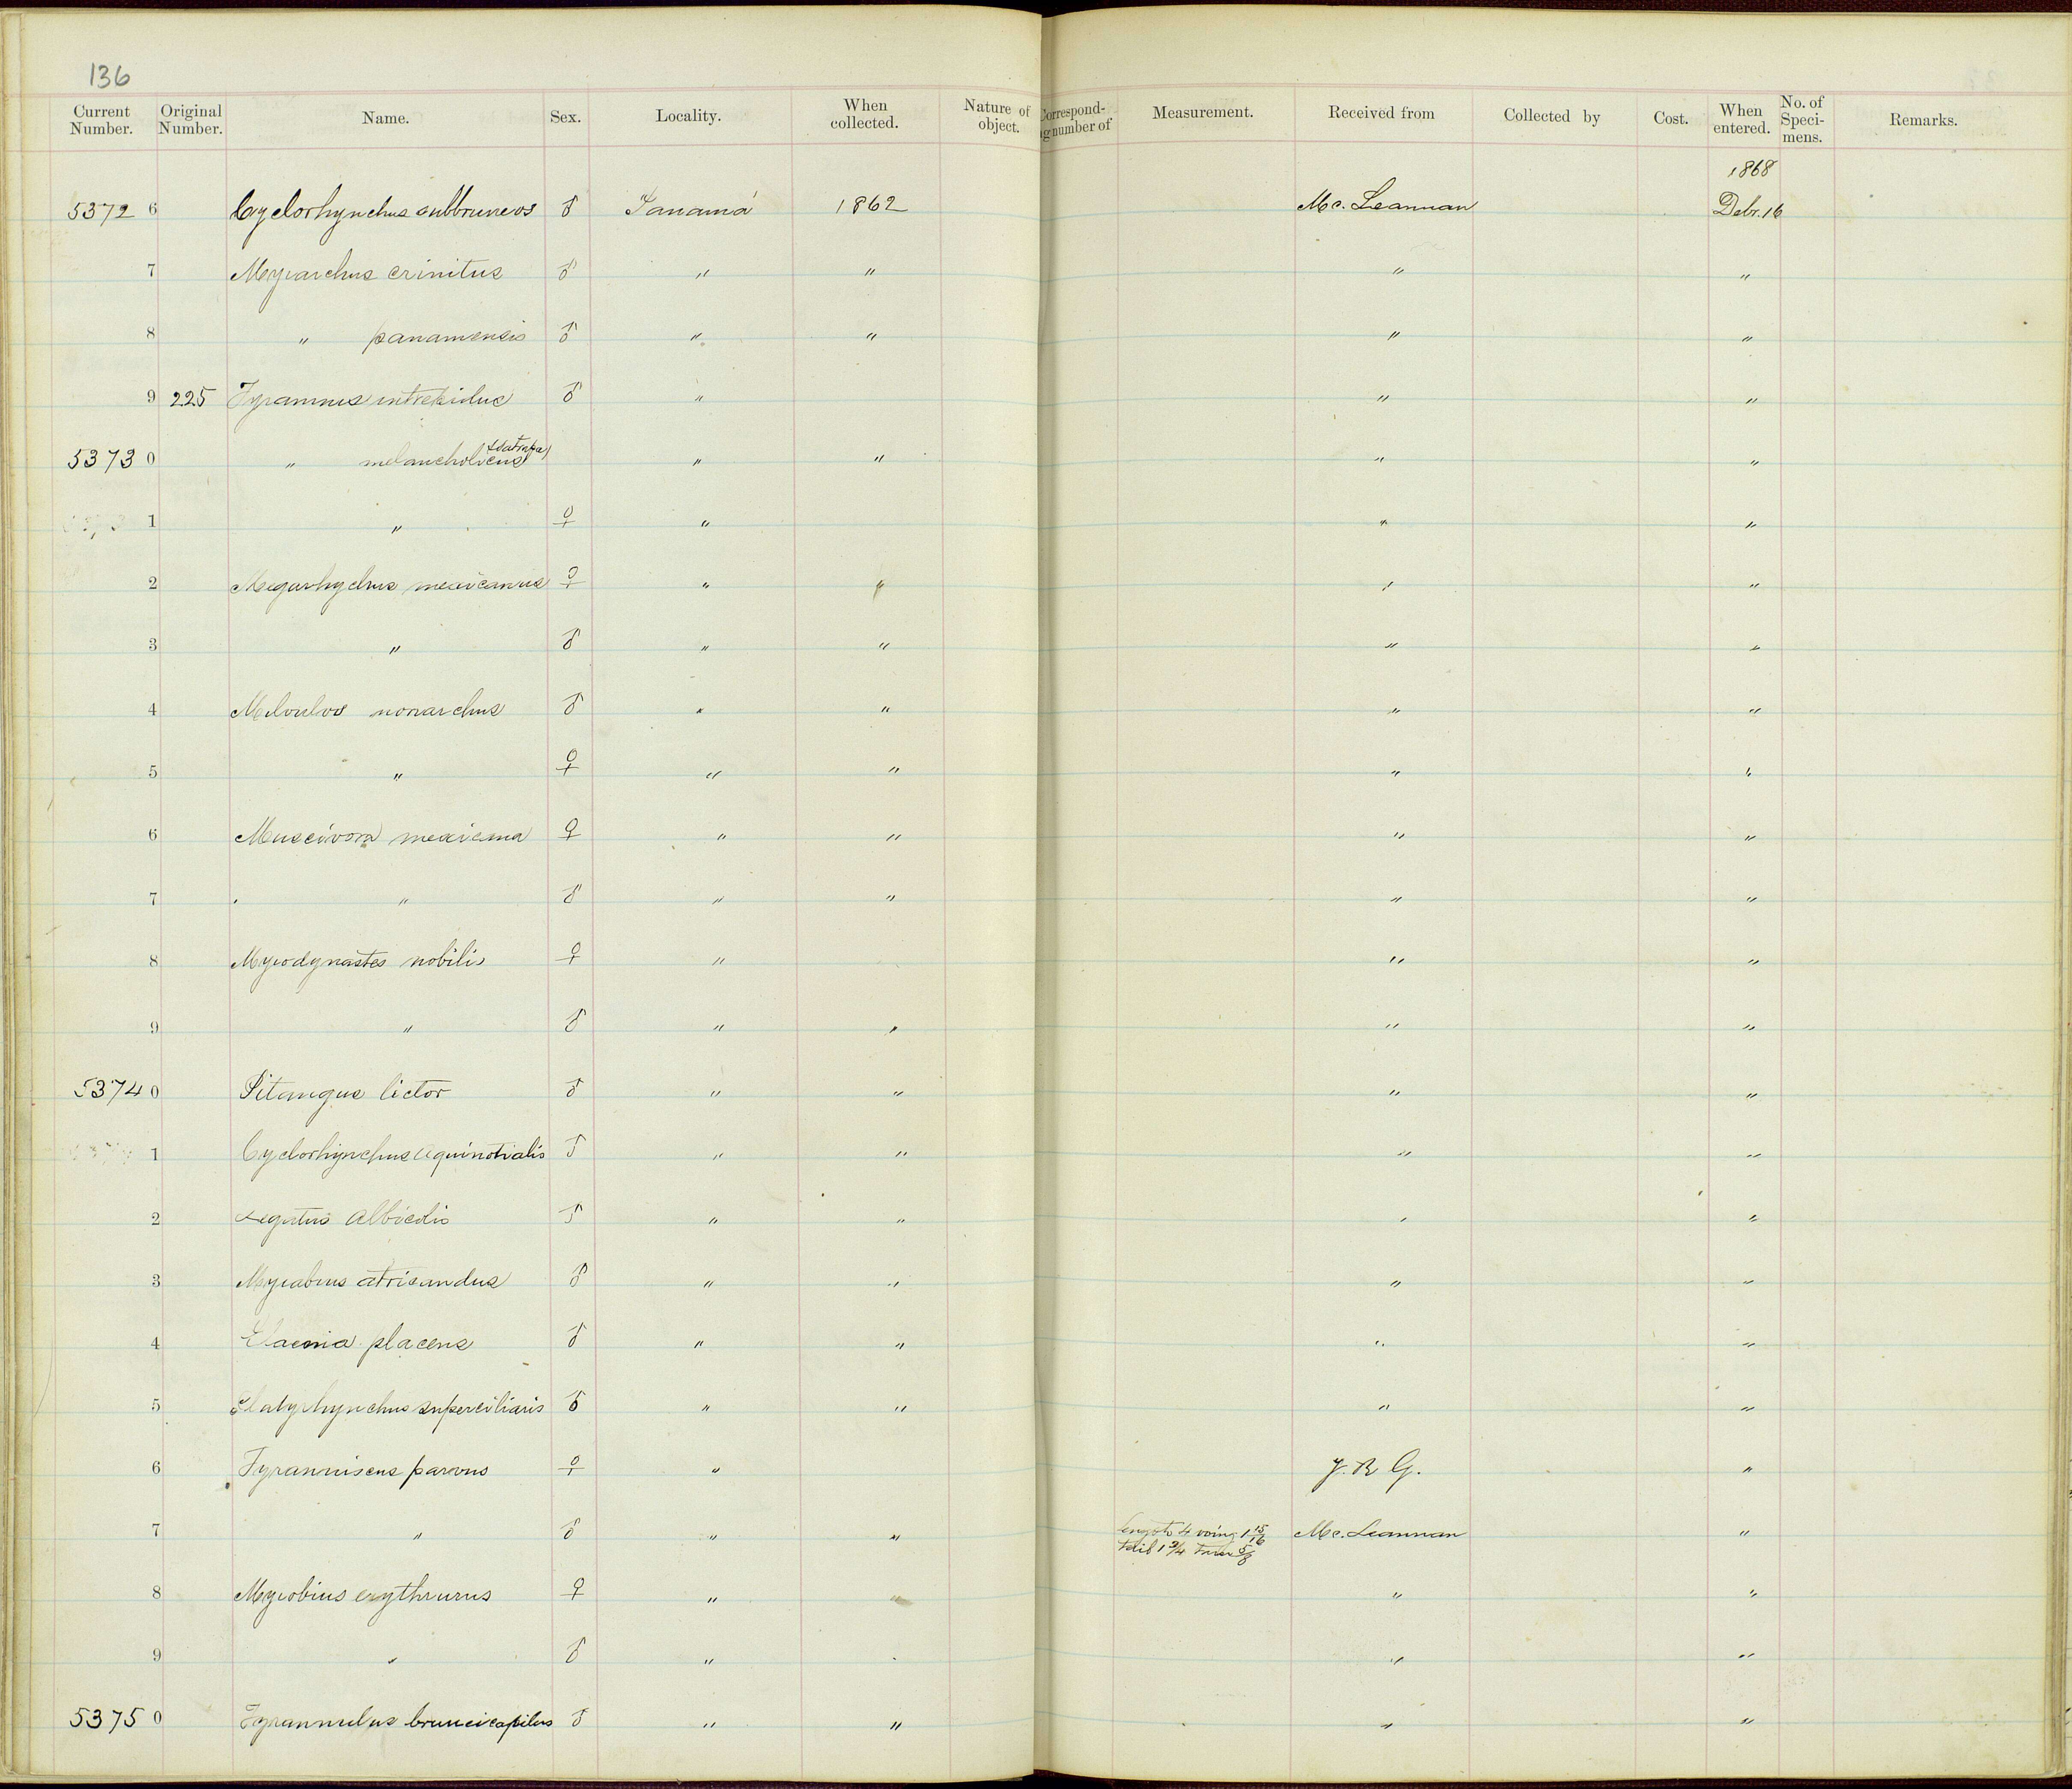 136
Current Number. Original Number. Name. Sex. Locality. When collected. Nature of object. Correspond- g number of Measurement. Received from Collected by Cost. When entered. No. of Speci- mens. Remarks.
1868
53726 Cyclorhynchus subbruneus ♂ Panamá 1862 Mc. Leannan Debr. 16
7 Myiarchus crinitus ♂ " " " "
8 " panamensis ♂ " " " "
9 225 Tyrannus intrepidus ♂ " " "
53730 " melancholicus (satrapa) " " " "
1 " ♀ " " "
2 Megarhychus mexicanus ♀ " " " "
3 " ♂ " " " "
4 Milvulus monarchus ♂ " " " "
5 " ♀ " " " "
6 Muscivora mexicana ♀ " " " "
7 " ♂ " " " "
8 Myiodynastes nobilis ♀ " " "
9 " ♂ " " " "
53740 Pitangus lictor ♂ " " " "
1 Cyclorhynchus aquinotialis ♂ " " " "
2 Legatus albicolis ♂ " " " "
3 Myiabius atricundus ♂ " " " "
4 Elaenia placens ♂ " " " "
5 Platyrhynchus superciliaris ♂ " " " "
6 Tyranniscus parvus ♀ " J. R. G. "
7 " ♂ " " length 4 wing 1 15/16 Mc. Leannan "
tail 1 3/4 5/8
8 Myiobius erythrurus ♀ " " " "
9 " ♂ " " " "
53750 Tyrannulus bruneicapilus ♂ " " " "